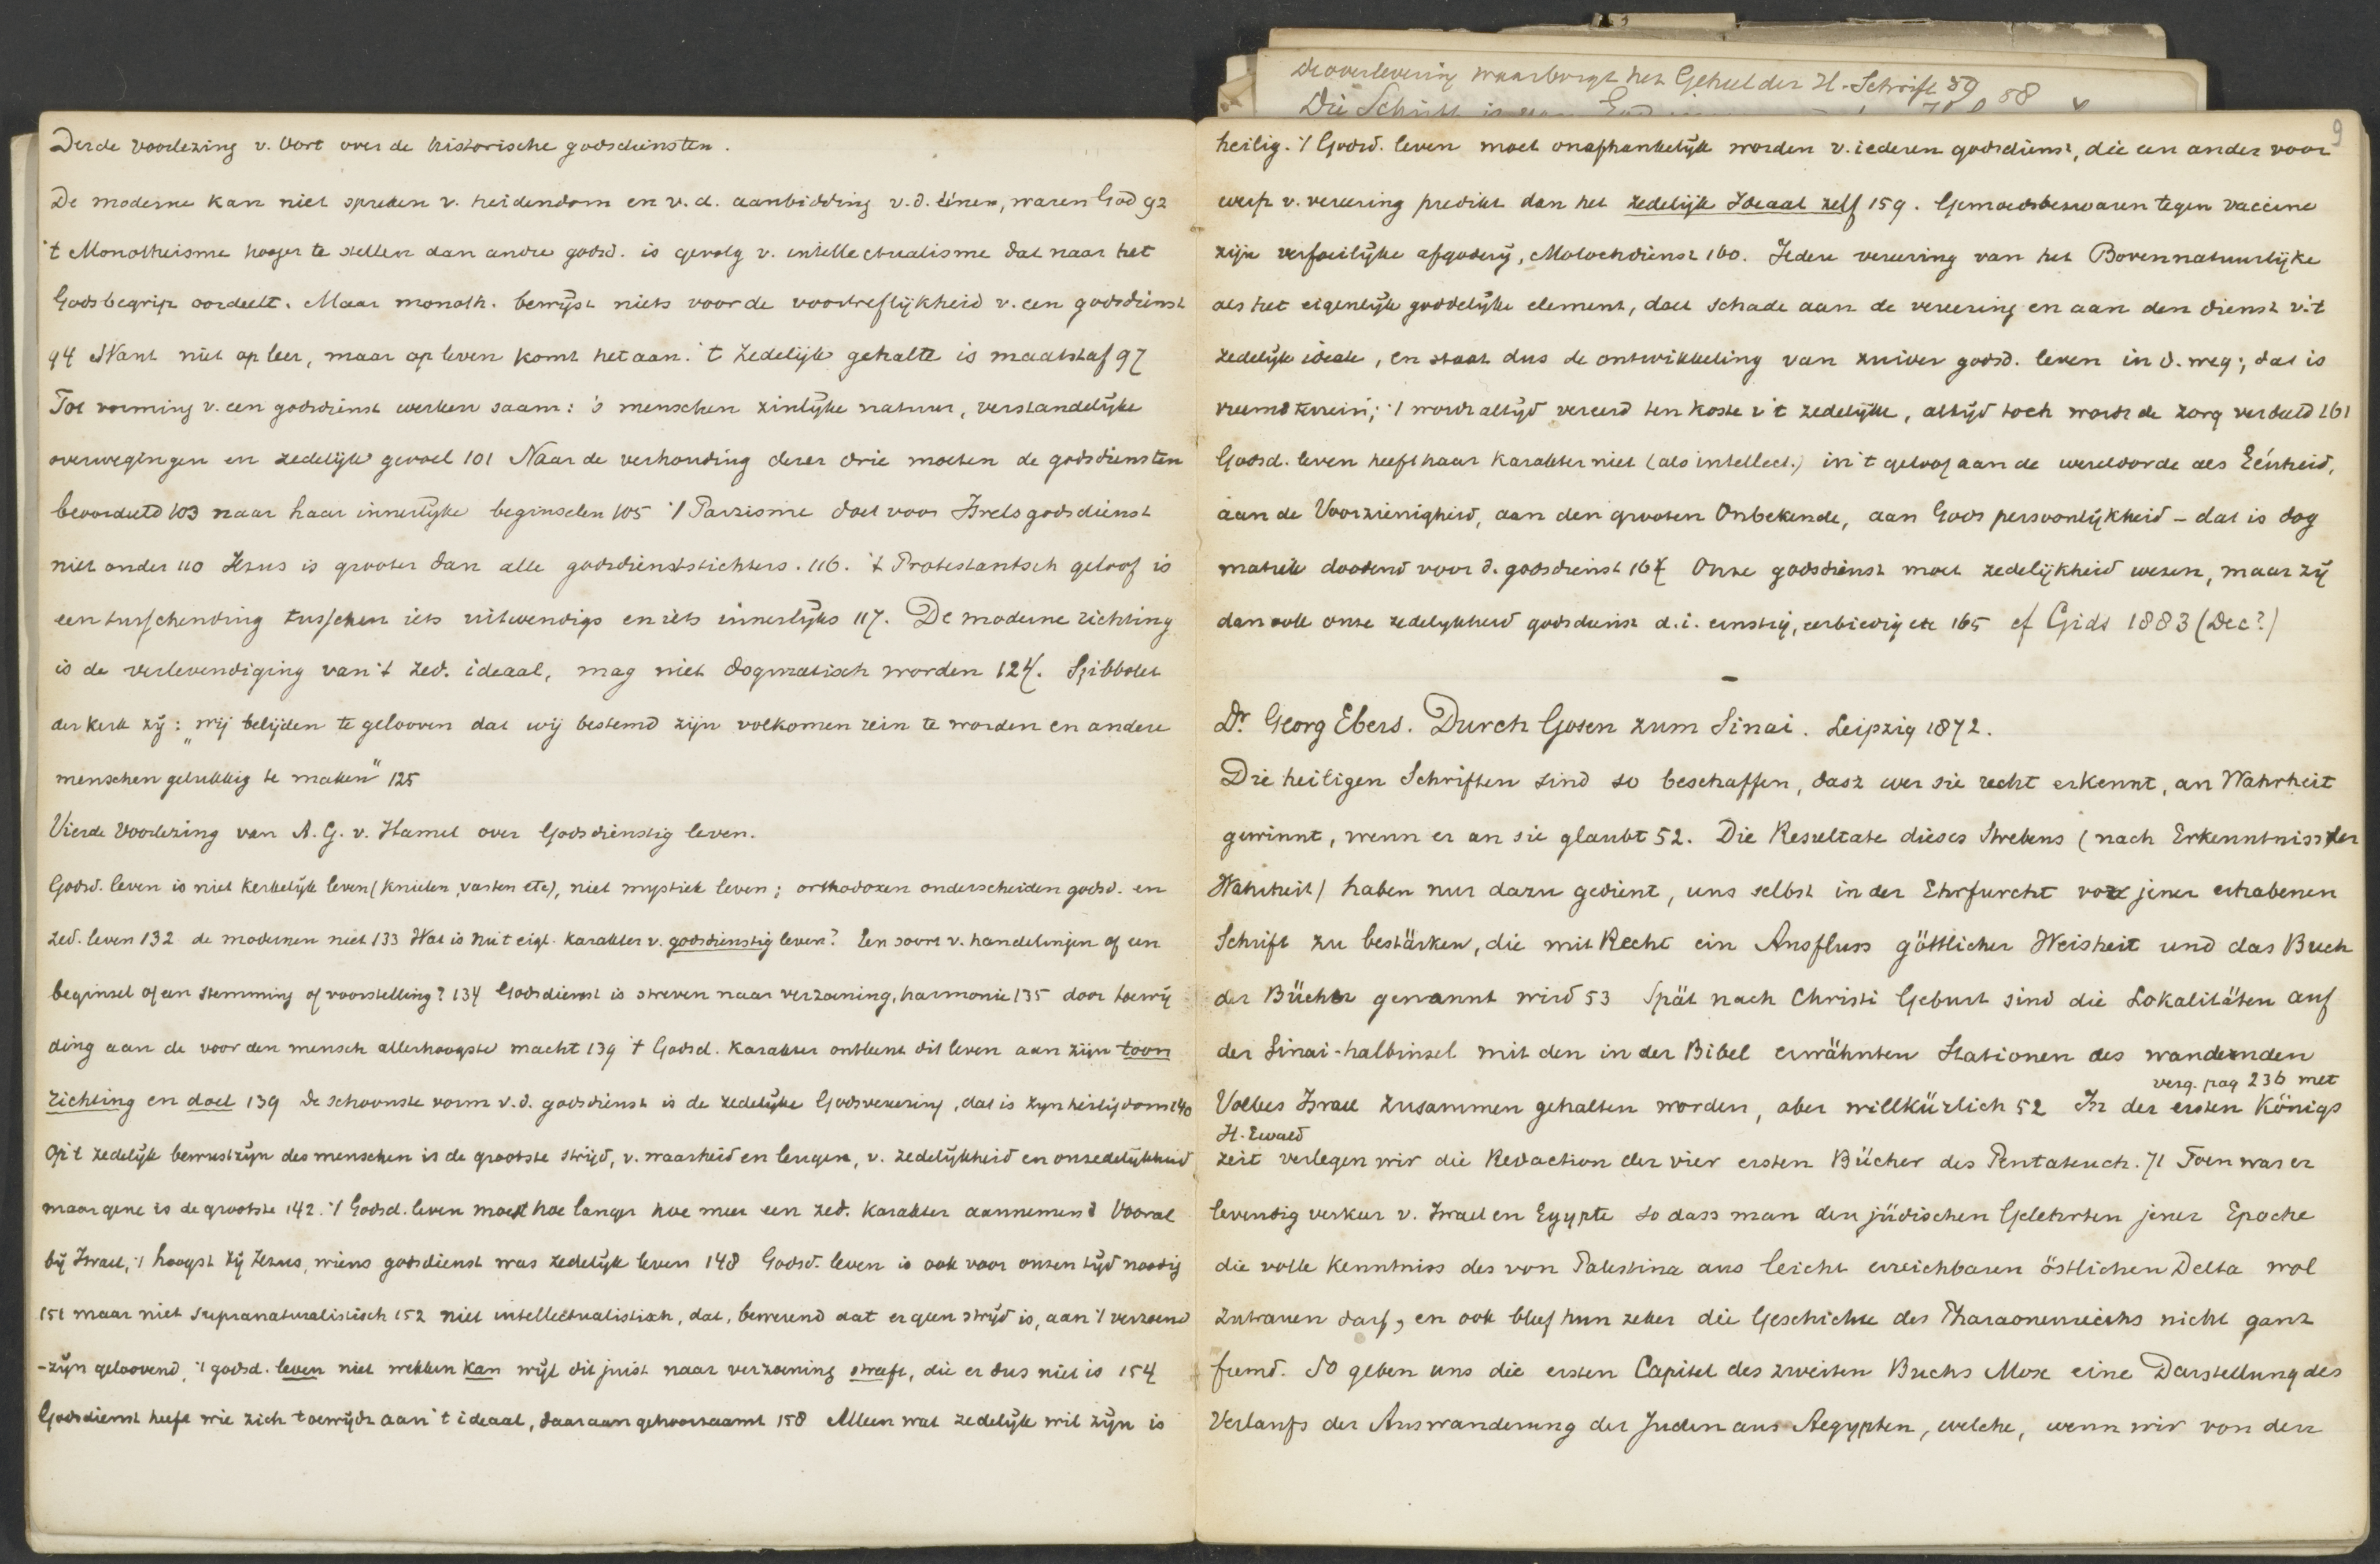 Derde voorlezing v. Oort over de historische godsdiensten.
De moderne kan niet spreken v. heidendom en v. d. aanbidding v. d. éénen, waren God 92
't Monotheisme hooger te stellen dan andre godsd. is gevolg v. intellectualisme dat naar het
Godsbegrip oordeelt. Maar monoth. bewijst niets voor de voortreflijkheid v. een godsdienst
94 Want niet op leer, maar op leven komt het aan. 't Zedelijk gehalte is maatstaf 97
Tot vorming v. een godsdienst werken saam: 's menschen zinlijke natuur, verstandelijke
overwegingen en zedelijk gevoel 101 Naar de verhouding dezer drie moeten de godsdiensten
beoordeeld 103 naar haar innerlijke beginselen 105 't Parzisme doet voor Isrels godsdienst
niet onder 110 Jezus is grooter dan alle godsdienststichters. 116. 't Protestantsch geloof is
een tusschending tusschen iets uitwendigs en iets innerlijks 117. De moderne richting
is de verlevendiging van 't zed. ideaal, mag niet dogmatisch worden 124. Sjibbolet
der kerk zij: „wij belijden te gelooven dat wij bestemd zijn volkomen rein te worden en andere
menschen gelukkig te maken" 125
Vierde Voorlezing van A. G. v. Hamel over Godsdienstig leven.
Godsd. leven is niet kerkelijk leven (knielen, vasten etc), niet mystiek leven; orthodoxen onderscheiden godsd. en
zed. leven 132 de modernen niet 133 Wat is nu 't eigl. karakter v. godsdienstig leven? Een soort v. handelingen of een
beginsel of een stemming of voorstelling? 134 Godsdienst is streven naar verzoening, harmonie 135 door toewij
ding aan de voor den mensch allerhoogste macht 139 't Godsd. karakter ontleent dit leven aan zijn toon
richting en doel 139 De schoonste vorm v. d. godsdienst is de zedelijke Godsvereering, dat is zijn heiligdom 140
Op 't zedelijk bewustzijn des menschen is de grootste strijd, v. waarheid en leugen, v. zedelijkheid en onzedelijkheid
maar gene is de grootste 142. 't Godsd. leven moest hoe langer hoe meer een zed. karakter aannemend Vooral
bij Israel, 't hoogst bij Jezus, wiens godsdienst was zedelijk leven 148 Godsd. leven is ook voor onzen tijd noodig
151 maar niet supranaturalistisch 152 niet intellectualistisch, dat, bewerend dat er geen strijd is, aan 't verzoend
-zijn geloovend, 't godsd. leven niet wekken kan wijl dit juist naar verzoening streeft, die er dus niet is 154
Godsdienst heeft wie zich toewijdt aan 't ideaal, daaraan gehoorzaamt 158 Alleen wat zedelijk wil zijn is
de overlevering waarborgt het Geheel der H. Schrift 59 58
9
heilig. 't Godsd. leven moet onafhankelijk worden v. iederen godsdienst, die een ander voor
werp v. vereering predikt dan het zedelijk Ideaal zelf 159. Gemoedsbezwaren tegen vaccine
zijn verfoeilijke afgoderij, Molochdienst 160. Iedere vereering van het Bovennatuurlijke
als het eigenlijk goddelijke element, doet schade aan de vereering en aan den dienst v. 't
zedelijk ideale, en staat dus de ontwikkeling van zuiver godsd. leven in d. weg; dat is
vreemd terrein; 't wordt altijd vereerd ten koste v 't zedelijke, altijd toch wordt de zorg verdeeld 161
Godsd. leven heeft haar karakter niet (als intellect.) in 't geloof aan de wereldorde als Eénheid,
aan de Voorzienigheid, aan den grooten Onbekende, aan Gods persoonlijkheid – dat is dog
matiek doodend voor d. godsdienst 164 Onze godsdienst moet zedelijkheid wezen, maar zij
dan ook onze zedelijkheid godsdienst d. i. ernstig, eerbiedig etc 165 cf Gids 1883 (Dec?)
Dr. Georg Ebers. Durch Gosen zum Sinai. Leipzig 1872.
Die heiligen Schriften sind so beschaffen, dasz wer sie recht erkennt, an Wahrheit
gewinnt, wenn er an sie glaubt 52. Die Resultate dieses Strebens (nach Erkenntniss der
Wahrheit) haben nur dazu gedient, uns selbst in der Ehrfurcht vor jener erhabenen
Schrift zu bestärken, die mit Recht ein Ausfluss göttlicher Weisheit und das Buch
der Bücher genannt wird 53 Spät nach Christi Geburt sind die Lokalitäten auf
der Sinai-halbinsel mit den in der Bibel erwähnten Stationen des wandernden
Volkes Israel zusammen gehalten worden, aber willkürlich 52 In der ersten Königs
verg. pag 236 met
H. Ewald
zeit verlegen wir die Redaction der vier ersten Bücher des Pentateuch. 71 Toen was er
levendig verkeer v. Israel en Egypte so dass man den jüdischen Gelehrten jener Epoche
die volle Kenntniss des von Palestina aus leicht erreichbaren östlichen Delta wol
zutrauen darf, en ook bleef hun zeker die Geschichte des Pharaonenreichs nicht ganz
fremd. So geben uns die ersten Capitel des zweiten Buchs Mose eine Darstellung des
Verlaufs der Auswanderung der Juden aus Aegypten, welche, wenn wir von den